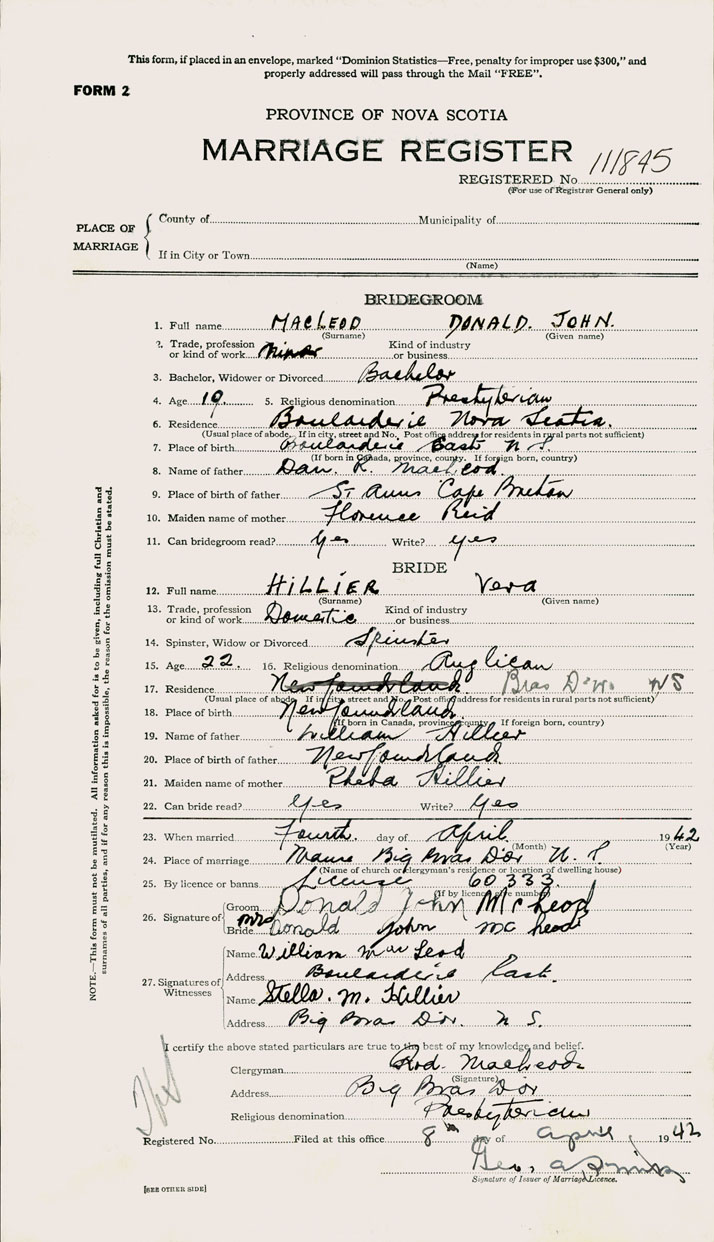 This form, if placed in an envelope, marked "Dominion Statistics—Free, penalty for improper use $300," and
properly addressed will pass through the Mail "FREE".
FORM 2
PROVINCE OF NOVA SCOTIA
MARRIAGE REGISTER
REGISTERED No. 111845
(For use of Registrar General only)
PLACE OF MARRIAGE
County of Municipality of
If in City or Town
(Name)
BRIDEGROOM
1. Full name MACLEOD DONALD. JOHN.
(Surname) (Given name)
2. Trade, profession or kind of work Miner Kind of industry or business
3. Bachelor, Widower or Divorced Bachelor
4. Age 19. 5. Religious denomination Presbyterian
6. Residence Boularderie Nova Scotia.
(Usual place of abode. If in city, street and No. Post office address for residents in rural parts not sufficient)
7. Place of birth Boularderie East N S.
(If born in Canada, province, county. If foreign born, country)
8. Name of father Dan. R. MacLeod
9. Place of birth of father St Anns Cape Breton
10. Maiden name of mother Florence Reid
11. Can bridegroom read? Yes Write? yes
BRIDE
12. Full name HILLIER Vera
(Surname) (Given name)
13. Trade, profession or kind of work Domestic Kind of industry or business
14. Spinster, Widow or Divorced Spinster
15. Age 22. 16. Religious denomination Anglican
17. Residence Newfoundland Bras D'or NS
(Usual place of abode. If in city, street and No. Post office address for residents in rural parts not sufficient)
18. Place of birth Newfoundland.
(If born in Canada, province, county. If foreign born, country)
19. Name of father William Hillier
20. Place of birth of father Newfoundland
21. Maiden name of mother Pheba Hillier
22. Can bride read? Yes Write? Yes
23. When married Fourth day of April 1942
(Month) (Year)
24. Place of marriage Manse Big Bras D'or N. S.
(Name of church or clergyman's residence or location of dwelling house)
25. By licence or banns License 60333.
(If by licence number)
26. Signature of
Groom Donald John McLeod
Bride Mrs Donald John McLeod
27. Signatures of Witnesses
Name William MacLeod
Address Boularderie East.
Name Stella. M. Hillier
Address Big Bras D'or. N S.
I certify the above stated particulars are true to the best of my knowledge and belief.
Clergyman Rod. MacLeod
(Signature)
Address Big Bras D'or
Religious denomination Presbyterian
Registered No. Filed at this office 8th day of April 1942
Geo. a
Signature of Issuer of Marriage Licence.
[SEE OTHER SIDE]
NOTE.—This form must not be mutilated. All information asked for is to be given, including full Christian and
surnames of all parties, and if for any reason this is impossible, the reason for the omission must be stated.